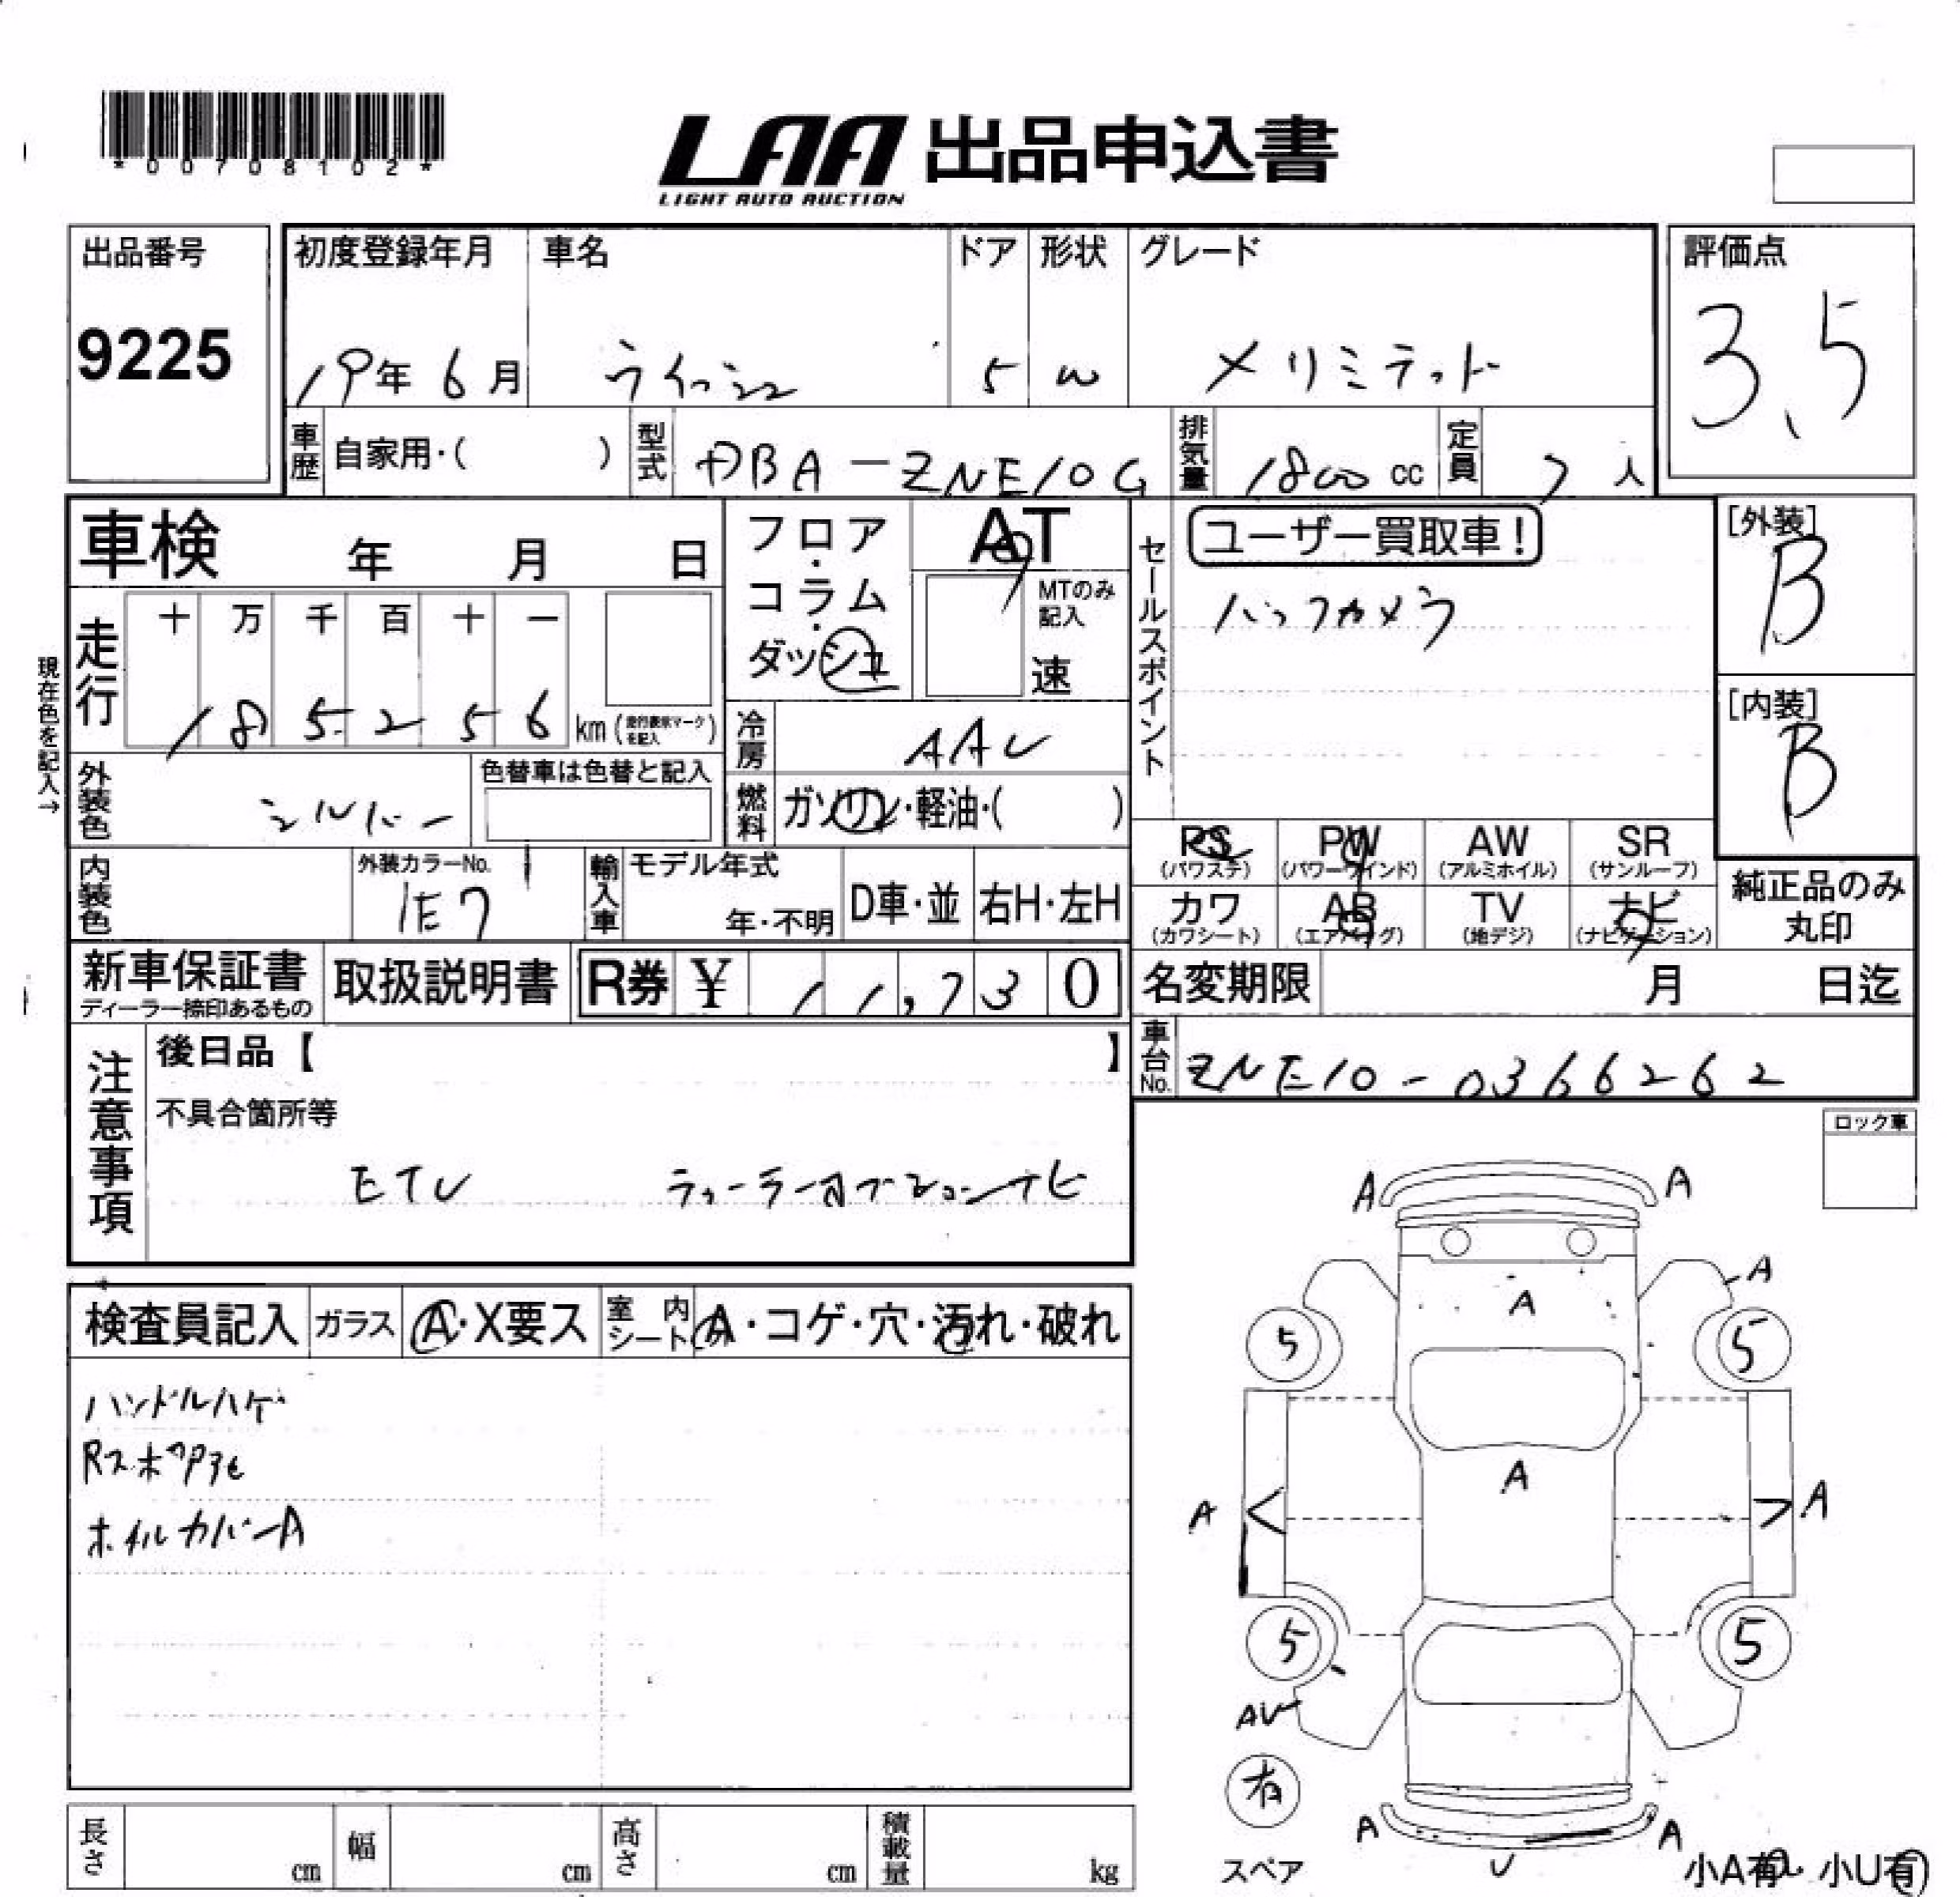 *00708102*
LAA 出品申込書
LIGHT AUTO AUCTION
出品番号
9225
初度登録年月
19年 6月
車名
ウイッシュ
ドア
5
形状
W
グレード
X リミテッド
評価点
3.5
車歴 自家用・( )
型式 DBA-ZNE10G
排気量 1800 cc
定員 7 人
車検 年 月 日
フロア・コラム・ダッシュ
AT
MTのみ記入
速
セールスポイント
ユーザー買取車!
バックカメラ
[外装]
B
[内装]
B
現在色を記入→
走行
十 万 千 百 十 一
185256 km (走行表示マークを記入)
冷房 AAC
外装色 シルバー
色替車は色替と記入
燃料 ガソリン・軽油・( )
PS PW AW SR
(パワステ) (パワーウインド) (アルミホイル) (サンルーフ)
カワ AB TV ナビ
(カワシート) (エアバッグ) (地デジ) (ナビゲーション)
純正品のみ
丸印
内装色
外装カラーNo.
1E7
輸入車
モデル年式
年・不明
D車・並
右H・左H
新車保証書
ディーラー捺印あるもの
取扱説明書
R券 ¥ 11,730
名変期限 月 日迄
車台No. ZNE10-0366262
注意事項
後日品【 】
不具合箇所等
ETC ディーラーオプションナビ
ロック車
検査員記入 ガラス A・X要ス 室内シート A・コゲ・穴・汚れ・破れ
ハンドルハゲ
ホイルカバーA
A A
A
A
5 5
A
A < > A
5 5
AU
有
スペア
A A
U
小A有 小U有
長さ cm 幅 cm 高さ cm 積載量 kg